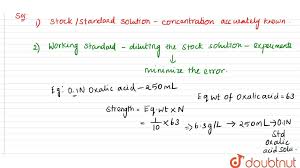 Sol
1) Stock/standard solution - concentration accurately known
2) Working standard - diluting the stock solution - expeuments
minimize the error.
Eg: 0.1N Oxalic acid - 250mL
Eq Wt of Oxalic acid = 63
Strength = Eq.wt × N
= 1/10 × 63 → 6.3g/L → 250mL → 0.1N
Std
Oxalic
acid solu.
doubtnut